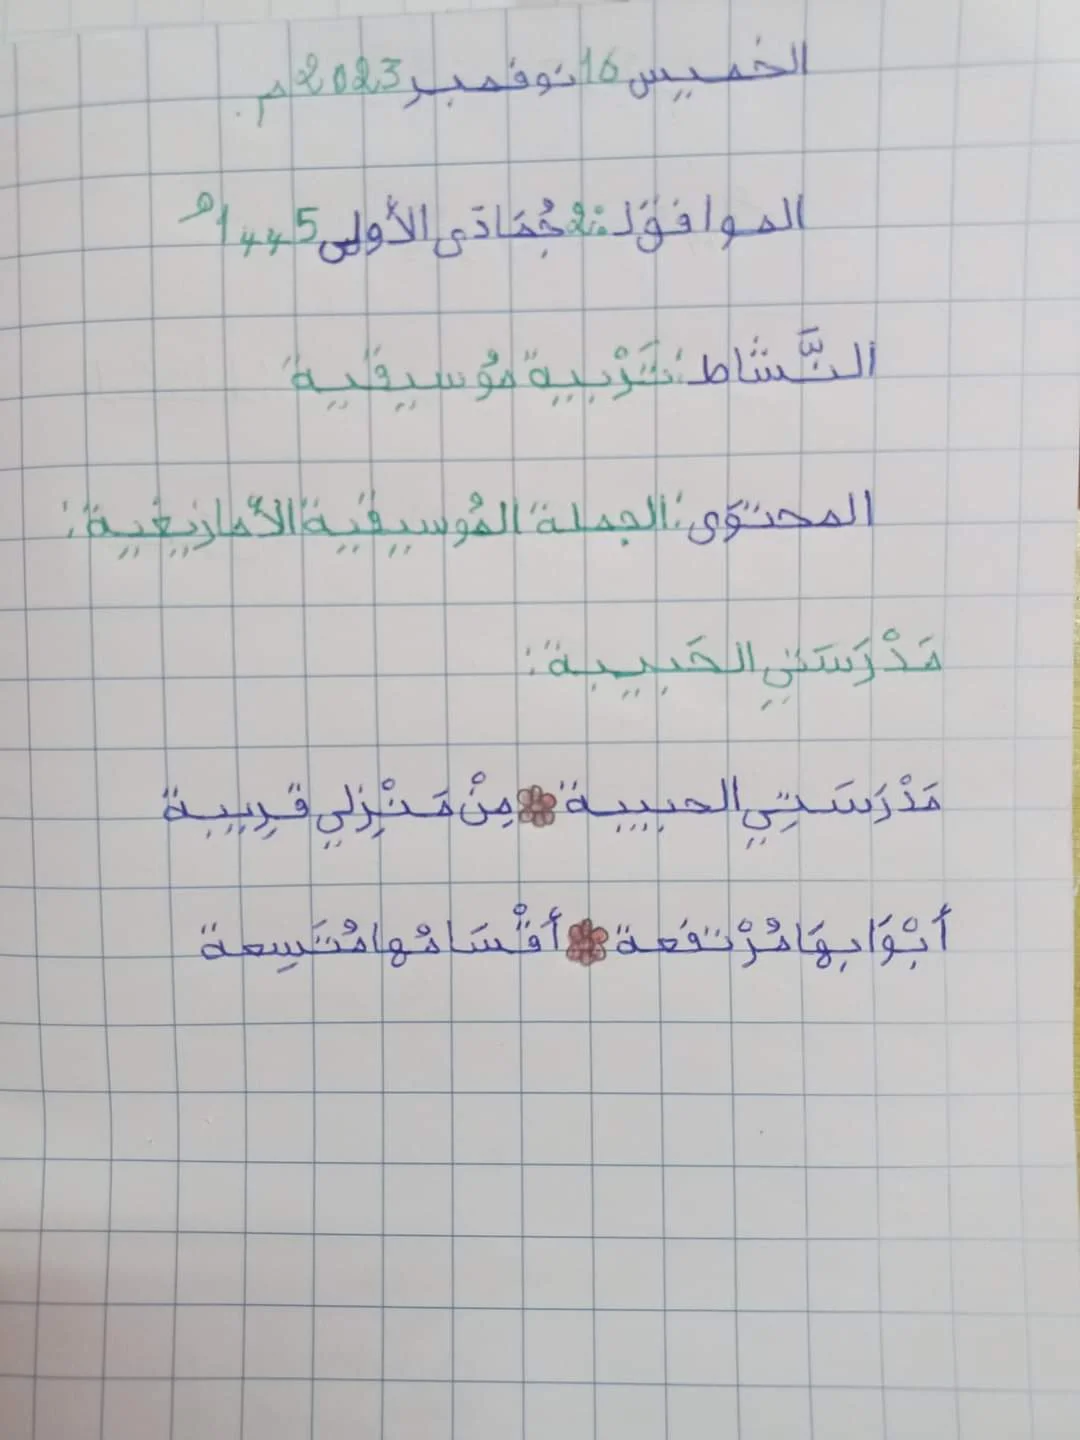 الخميس 16 نوفمبر 2023م.
الموافق لـ: 2 جُمَادَى الأُولى 1445هـ
النَّشاط: تَرْبية مُوسيقية
المحتوَى: الجملة المُوسيقية الأمازيغية:
مَدْرَسَتي الحَبيبة:
مَدْرَسَتِي الحبيبة مِنْ مَنْزِلي قريبة
أَبْوَابهَا مُرْتفَعة أَقْسَامُها مُتَسِعة